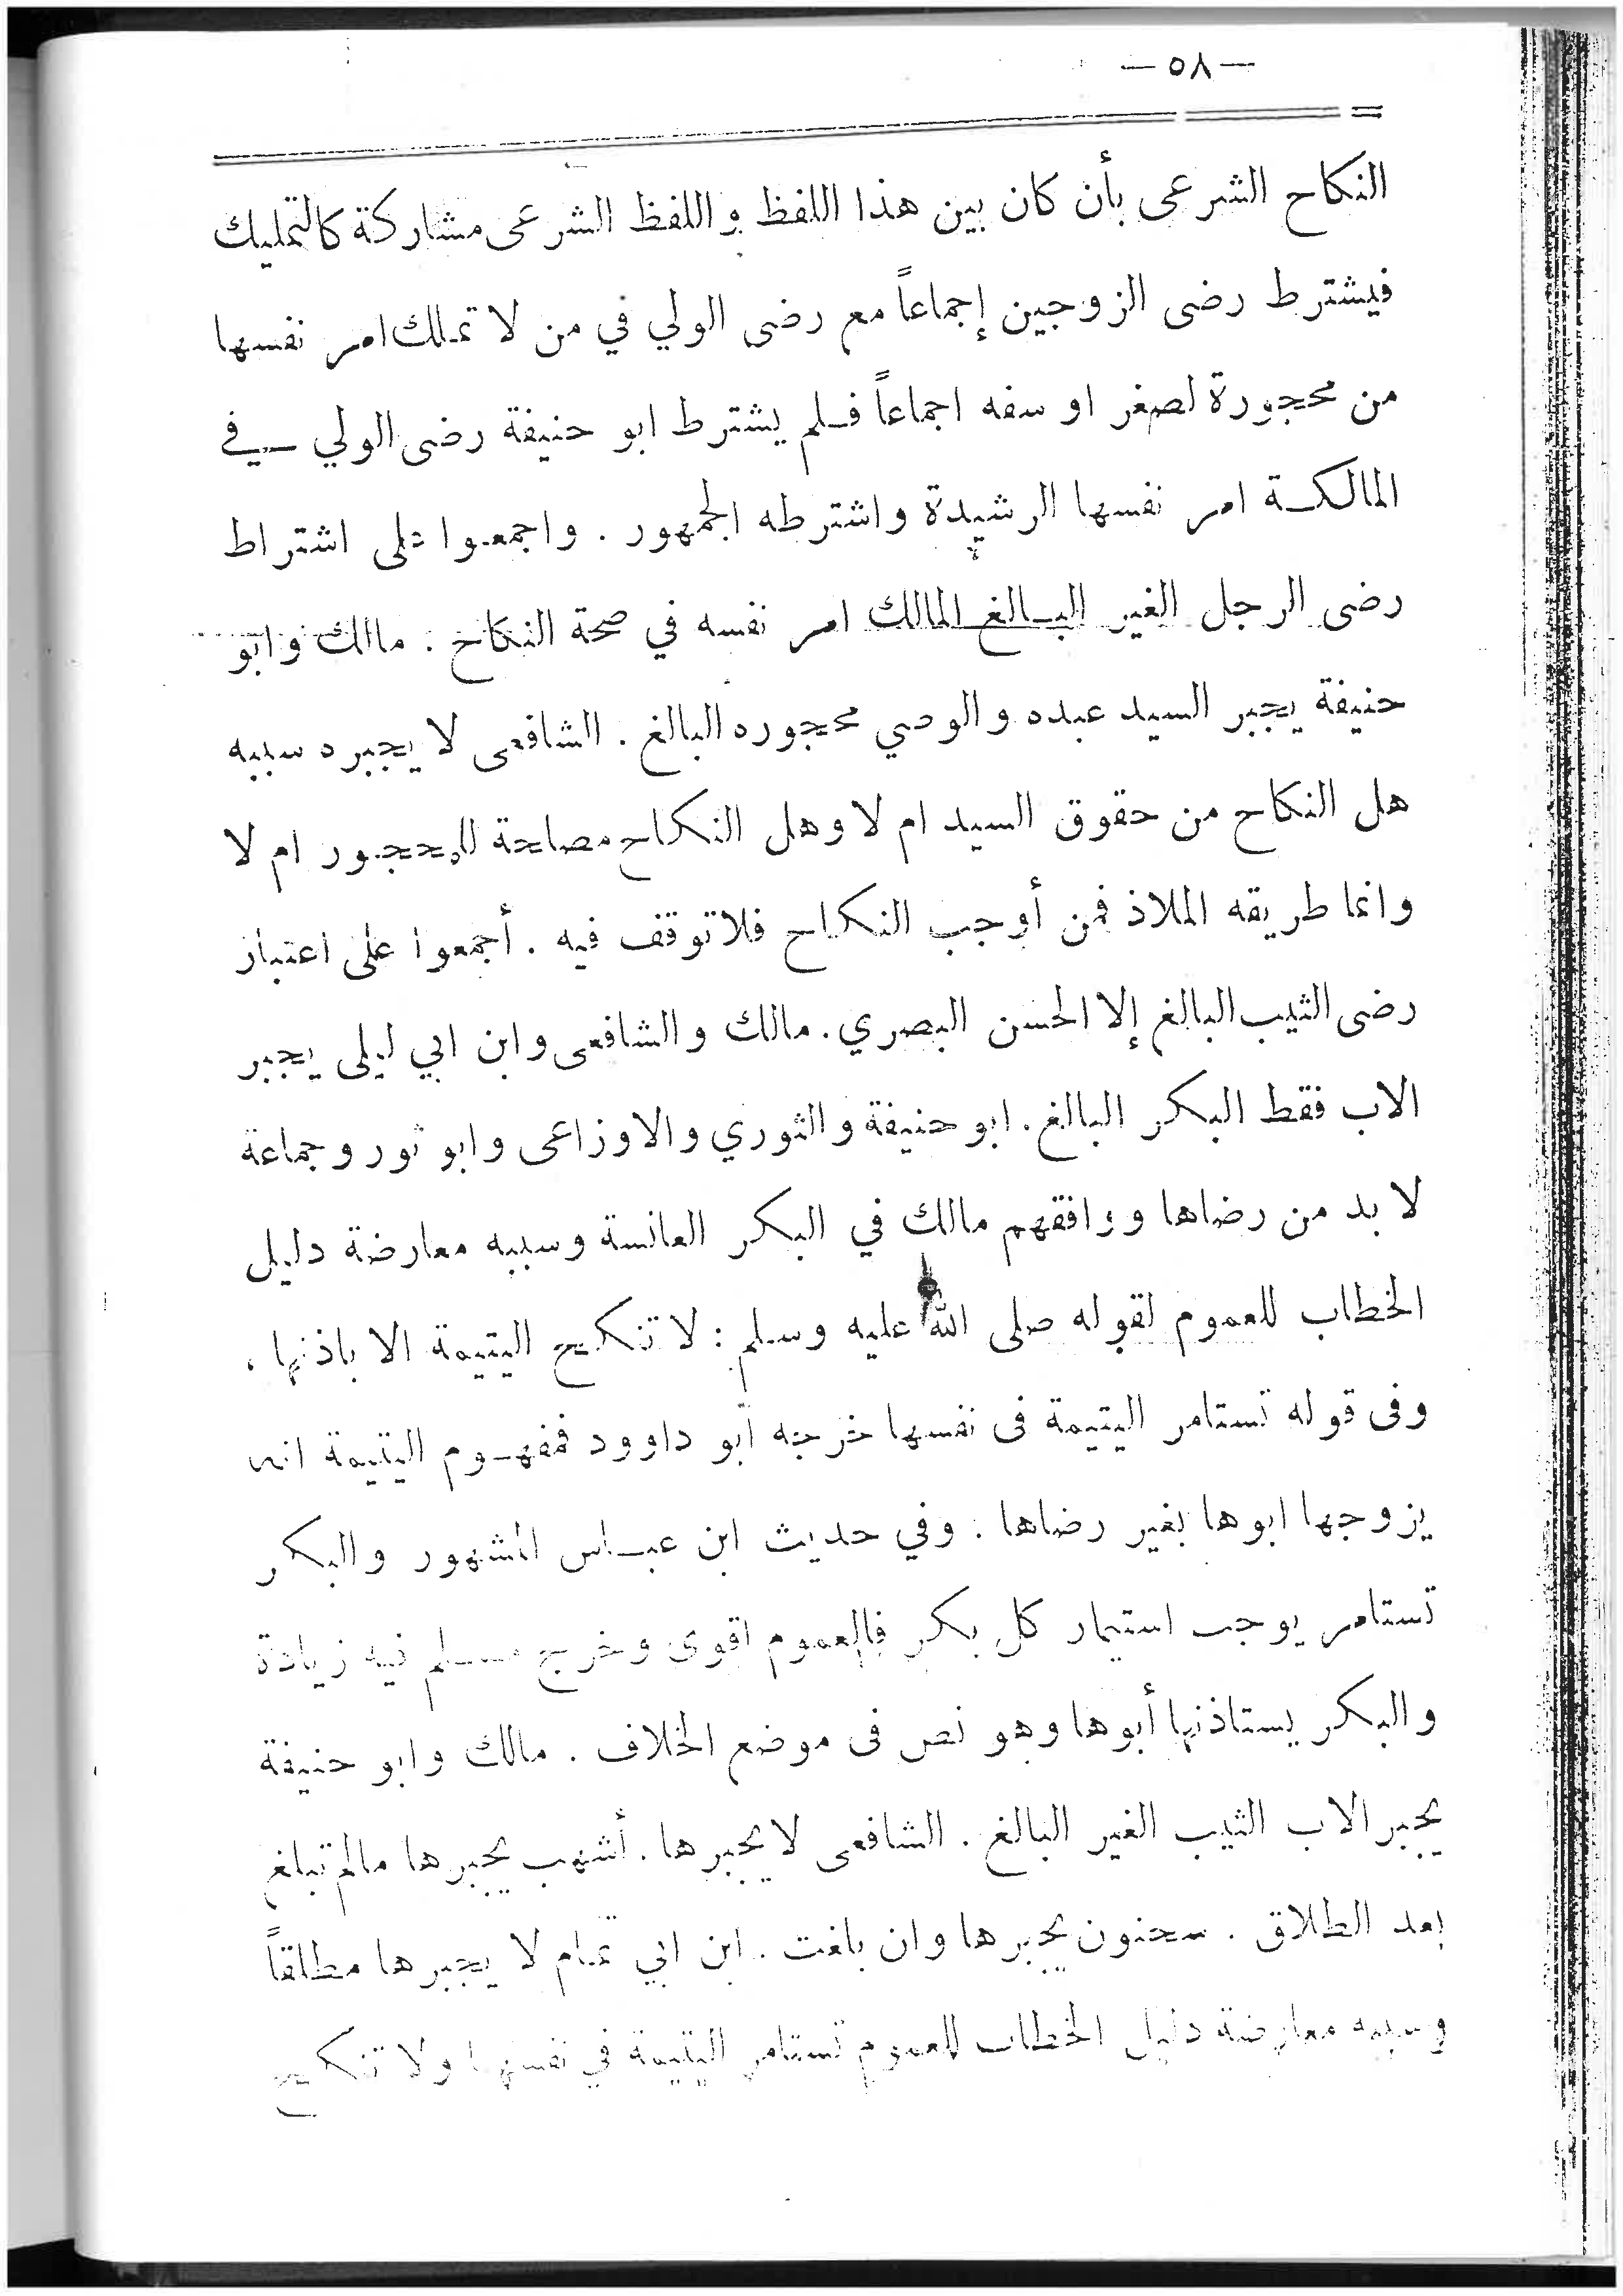 — ٥٨ —
النكاح الشرعى بأن كان بين هذا اللفظ واللفظ الشرعى مشاركة كالتمليك
فيشترط رضى الزوجين إجماعاً مع رضى الولي في من لا تملك امر نفسها
من محجورة لصغر او سفه اجماعاً فلم يشترط ابو حنيفة رضى الولي في
المالكة امر نفسها الرشيدة واشترطه الجمهور . واجمعوا على اشتراط
رضى الرجل الغير البالغ المالك امر نفسه في صحة النكاح . مالك وابو
حنيفة يجبر السيد عبده والوصي محجوره البالغ . الشافعى لا يجبره سببه
هل النكاح من حقوق السيد ام لا وهل النكاح مصلحة للمحجور ام لا
وانما طريقه الملاذ فمن أوجب النكاح فلا توقف فيه . أجمعوا على اعتبار
رضى الثيب البالغ إلا الحسن البصري . مالك والشافعى وابن ابي ليلى يجبر
الاب فقط البكر البالغ . ابو حنيفة والثوري والاوزاعى وابو ثور وجماعة
لا بد من رضاها ووافقهم مالك في البكر العانسة وسببه معارضة دليل
الخطاب للعموم لقوله صلى الله عليه وسلم : لا تنكح اليتيمة الا باذنها .
وفى قوله تستامر اليتيمة فى نفسها خرجه أبو داوود فمفهوم اليتيمة انه
يزوجها ابوها بغير رضاها . وفي حديث ابن عباس المشهور والبكر
تستامر يوجب استيمار كل بكر فالعموم اقوى وخرج مسلم فيه زيادة
والبكر يستاذنها أبوها وهو نص فى موضع الخلاف . مالك وابو حنيفة
يجبر الاب الثيب الغير البالغ . الشافعى لا يجبرها . أشهب يجبرها مالم تبلغ
بعد الطلاق . سحنون يجبرها وان بلغت . ابن ابي تمام لا يجبرها مطلقاً
وسببه معارضة دليل الخطاب للعموم تستامر اليتيمة في نفسها ولا تنكح